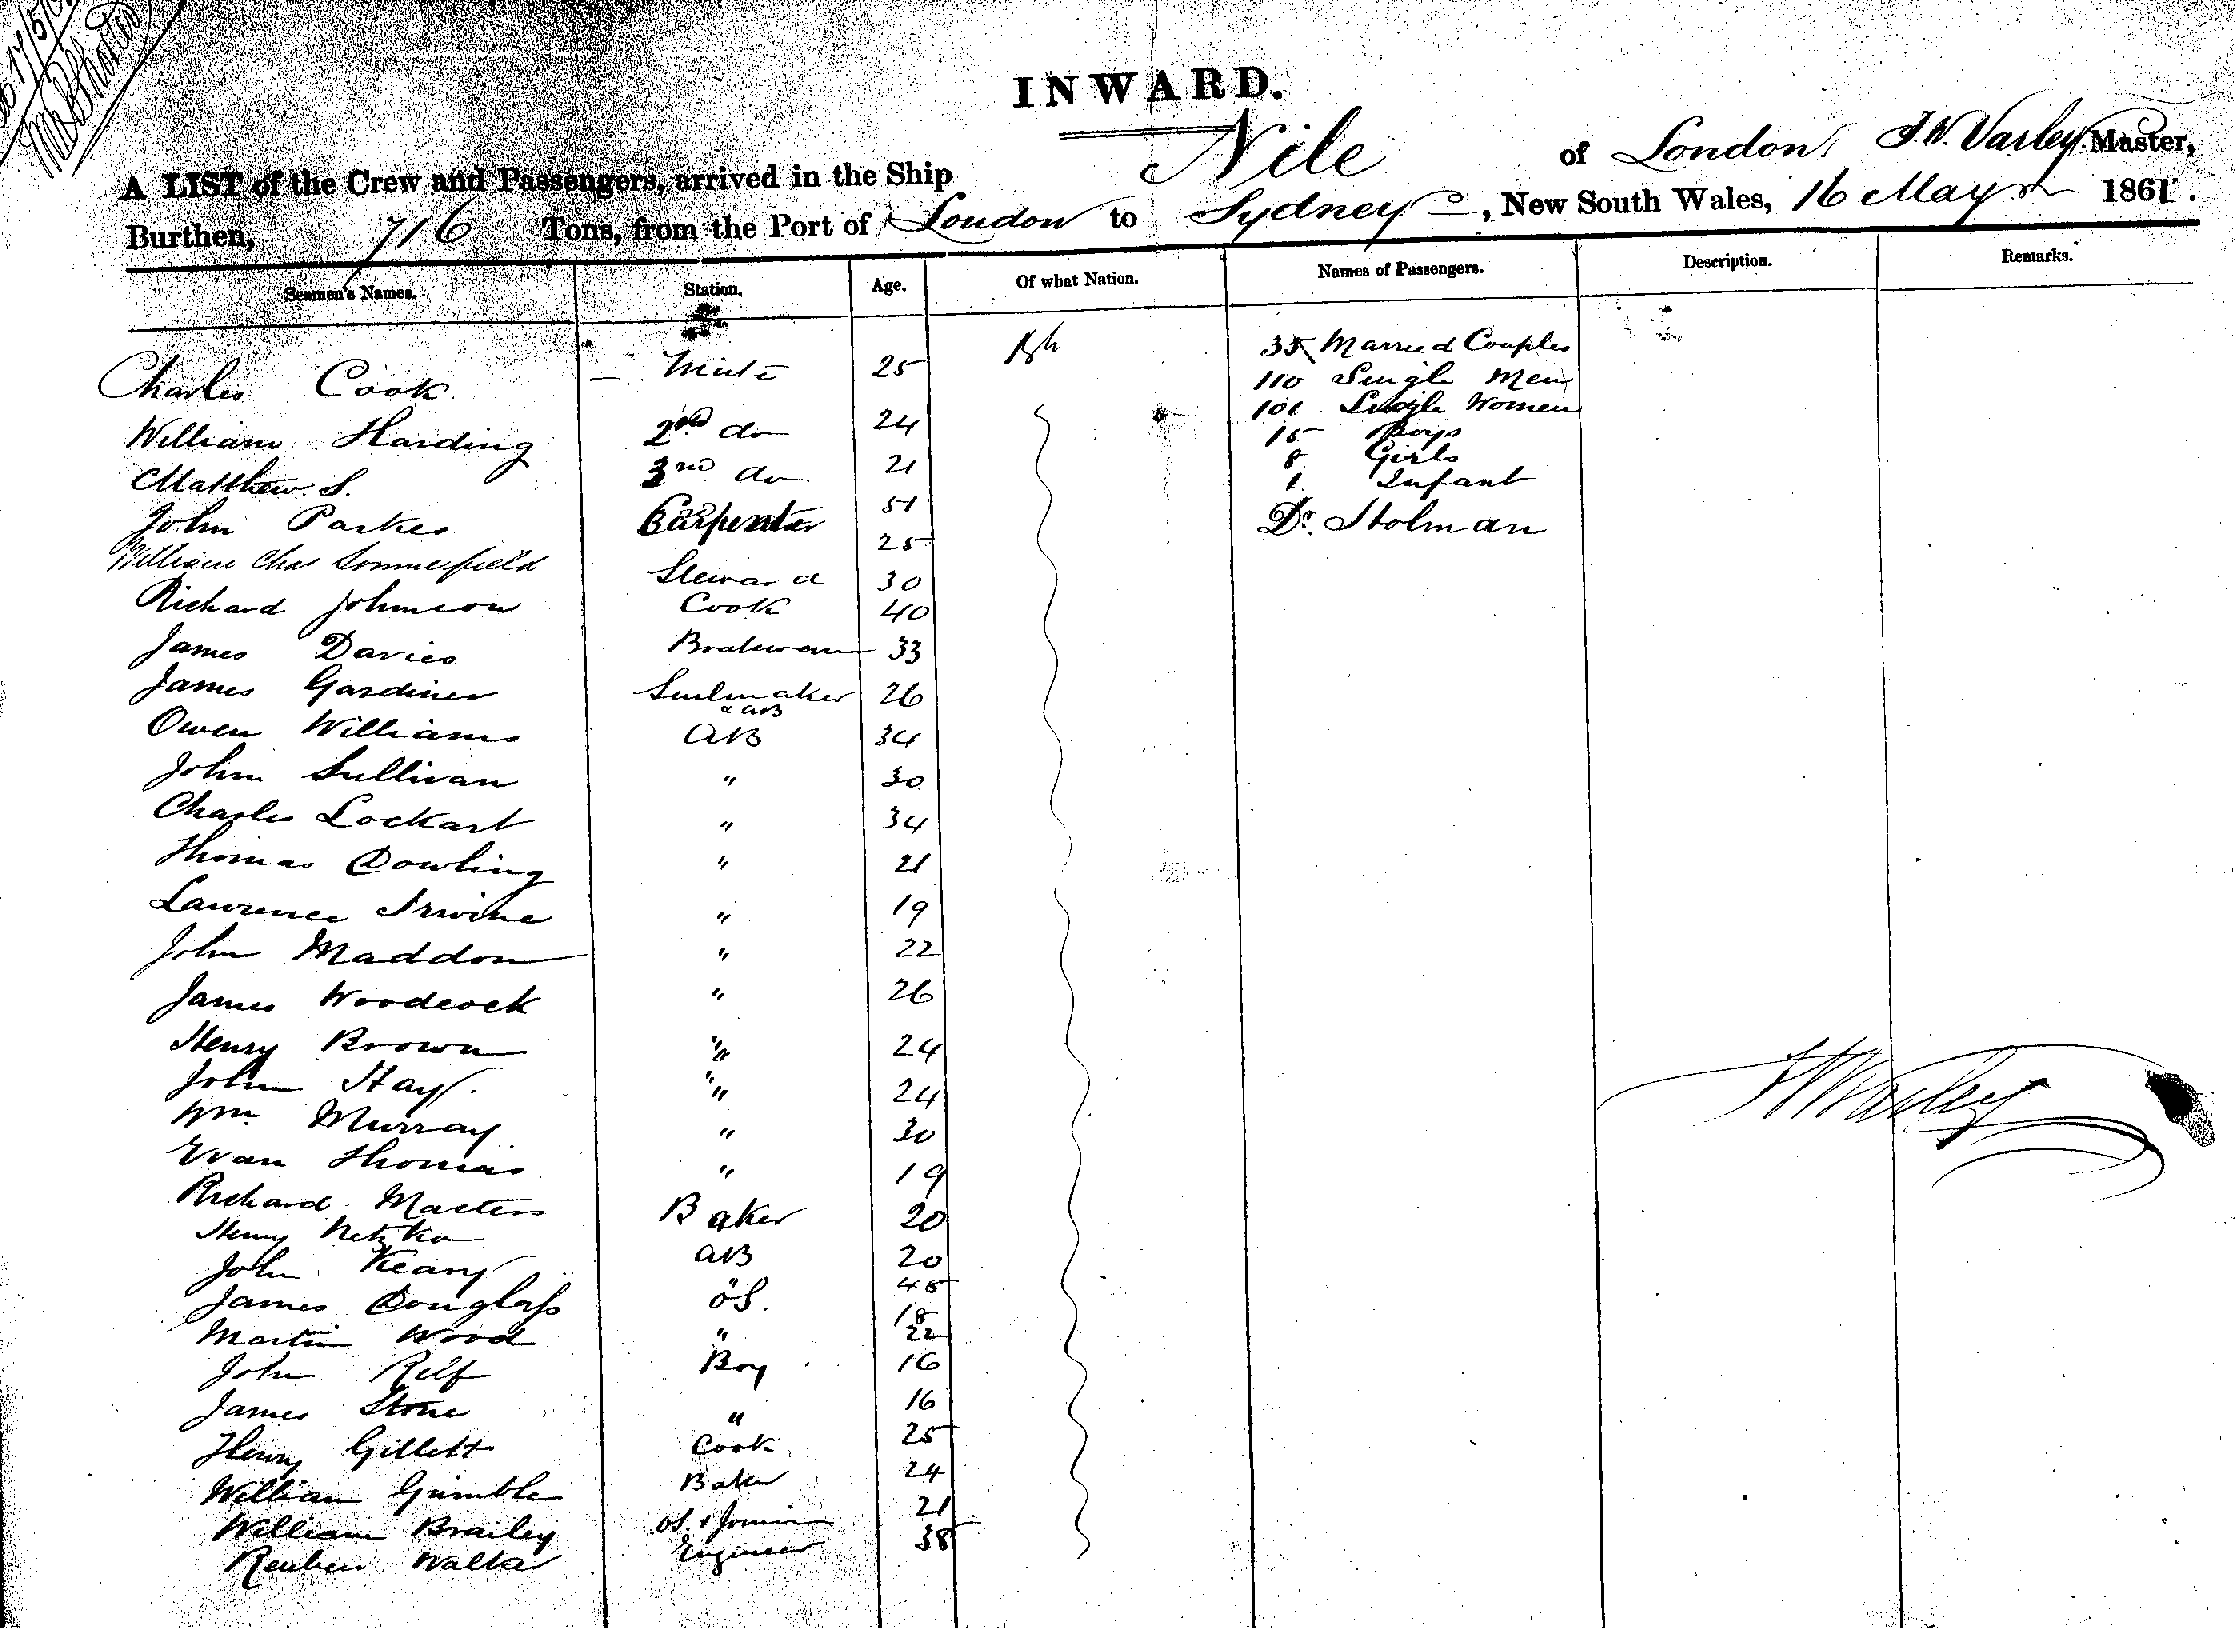 INWARD.
A LIST of the Crew and Passengers, arrived in the Ship Nile of London, J.W. Varley Master,
Burthen, 716 Tons, from the Port of London to Sydney, New South Wales, 16 May 1861.
Seamen's Names. Station. Age. Of what Nation. Names of Passengers. Description. Remarks.
Charles Cook Mate 25 35 Married Couples
110 Single Men
William Harding 2nd do 24 101 Single Women
15 Boys
Matthew S. 3rd do 21 8 Girls
1 Infant
John Parkes Carpenter 51 Dr. Stolman
William Chas Sommerfield 25
Steward 30
Richard Johnson Cook 40
James Davies 33
James Gardiner Sailmaker 26
& AB
Owen Williams AB 34
John Sullivan " 30
Charles Lockart " 34
Thomas Dowling " 21
Lawrence Irwine " 19
John Maddon " 22
James Woodcock " 26
Henry Brown " 24
John Hay " 24
Wm. Murray " 30
Evan Thomas " 19
Richard Masters Baker 20
Henry
John Keary AB 20
45
James Douglass OS. 18
Martin Wood " 22
John Relf Boy 16
James Stone " 16
Henry Gillett Cook 25
William Gumble Baker 24
William Brailey OS & Joiner 21
Reuben Walker Engineer 38
JWVarley